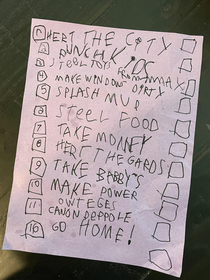 1 HERT THE CITY
2 PUNCH KIDS
3 STEEL TOYS FROM MAX
4 MAKE WINDOWS DIRTY
5 SPLASH MUD
6 STEEL FOOD
7 TAKE MONEY
8 HERT THE GARDS
9 TAKE BABBY'S
10 MAKE POWER
11 OUTEGES
CANON PEPPOLE
16 GO HOME!